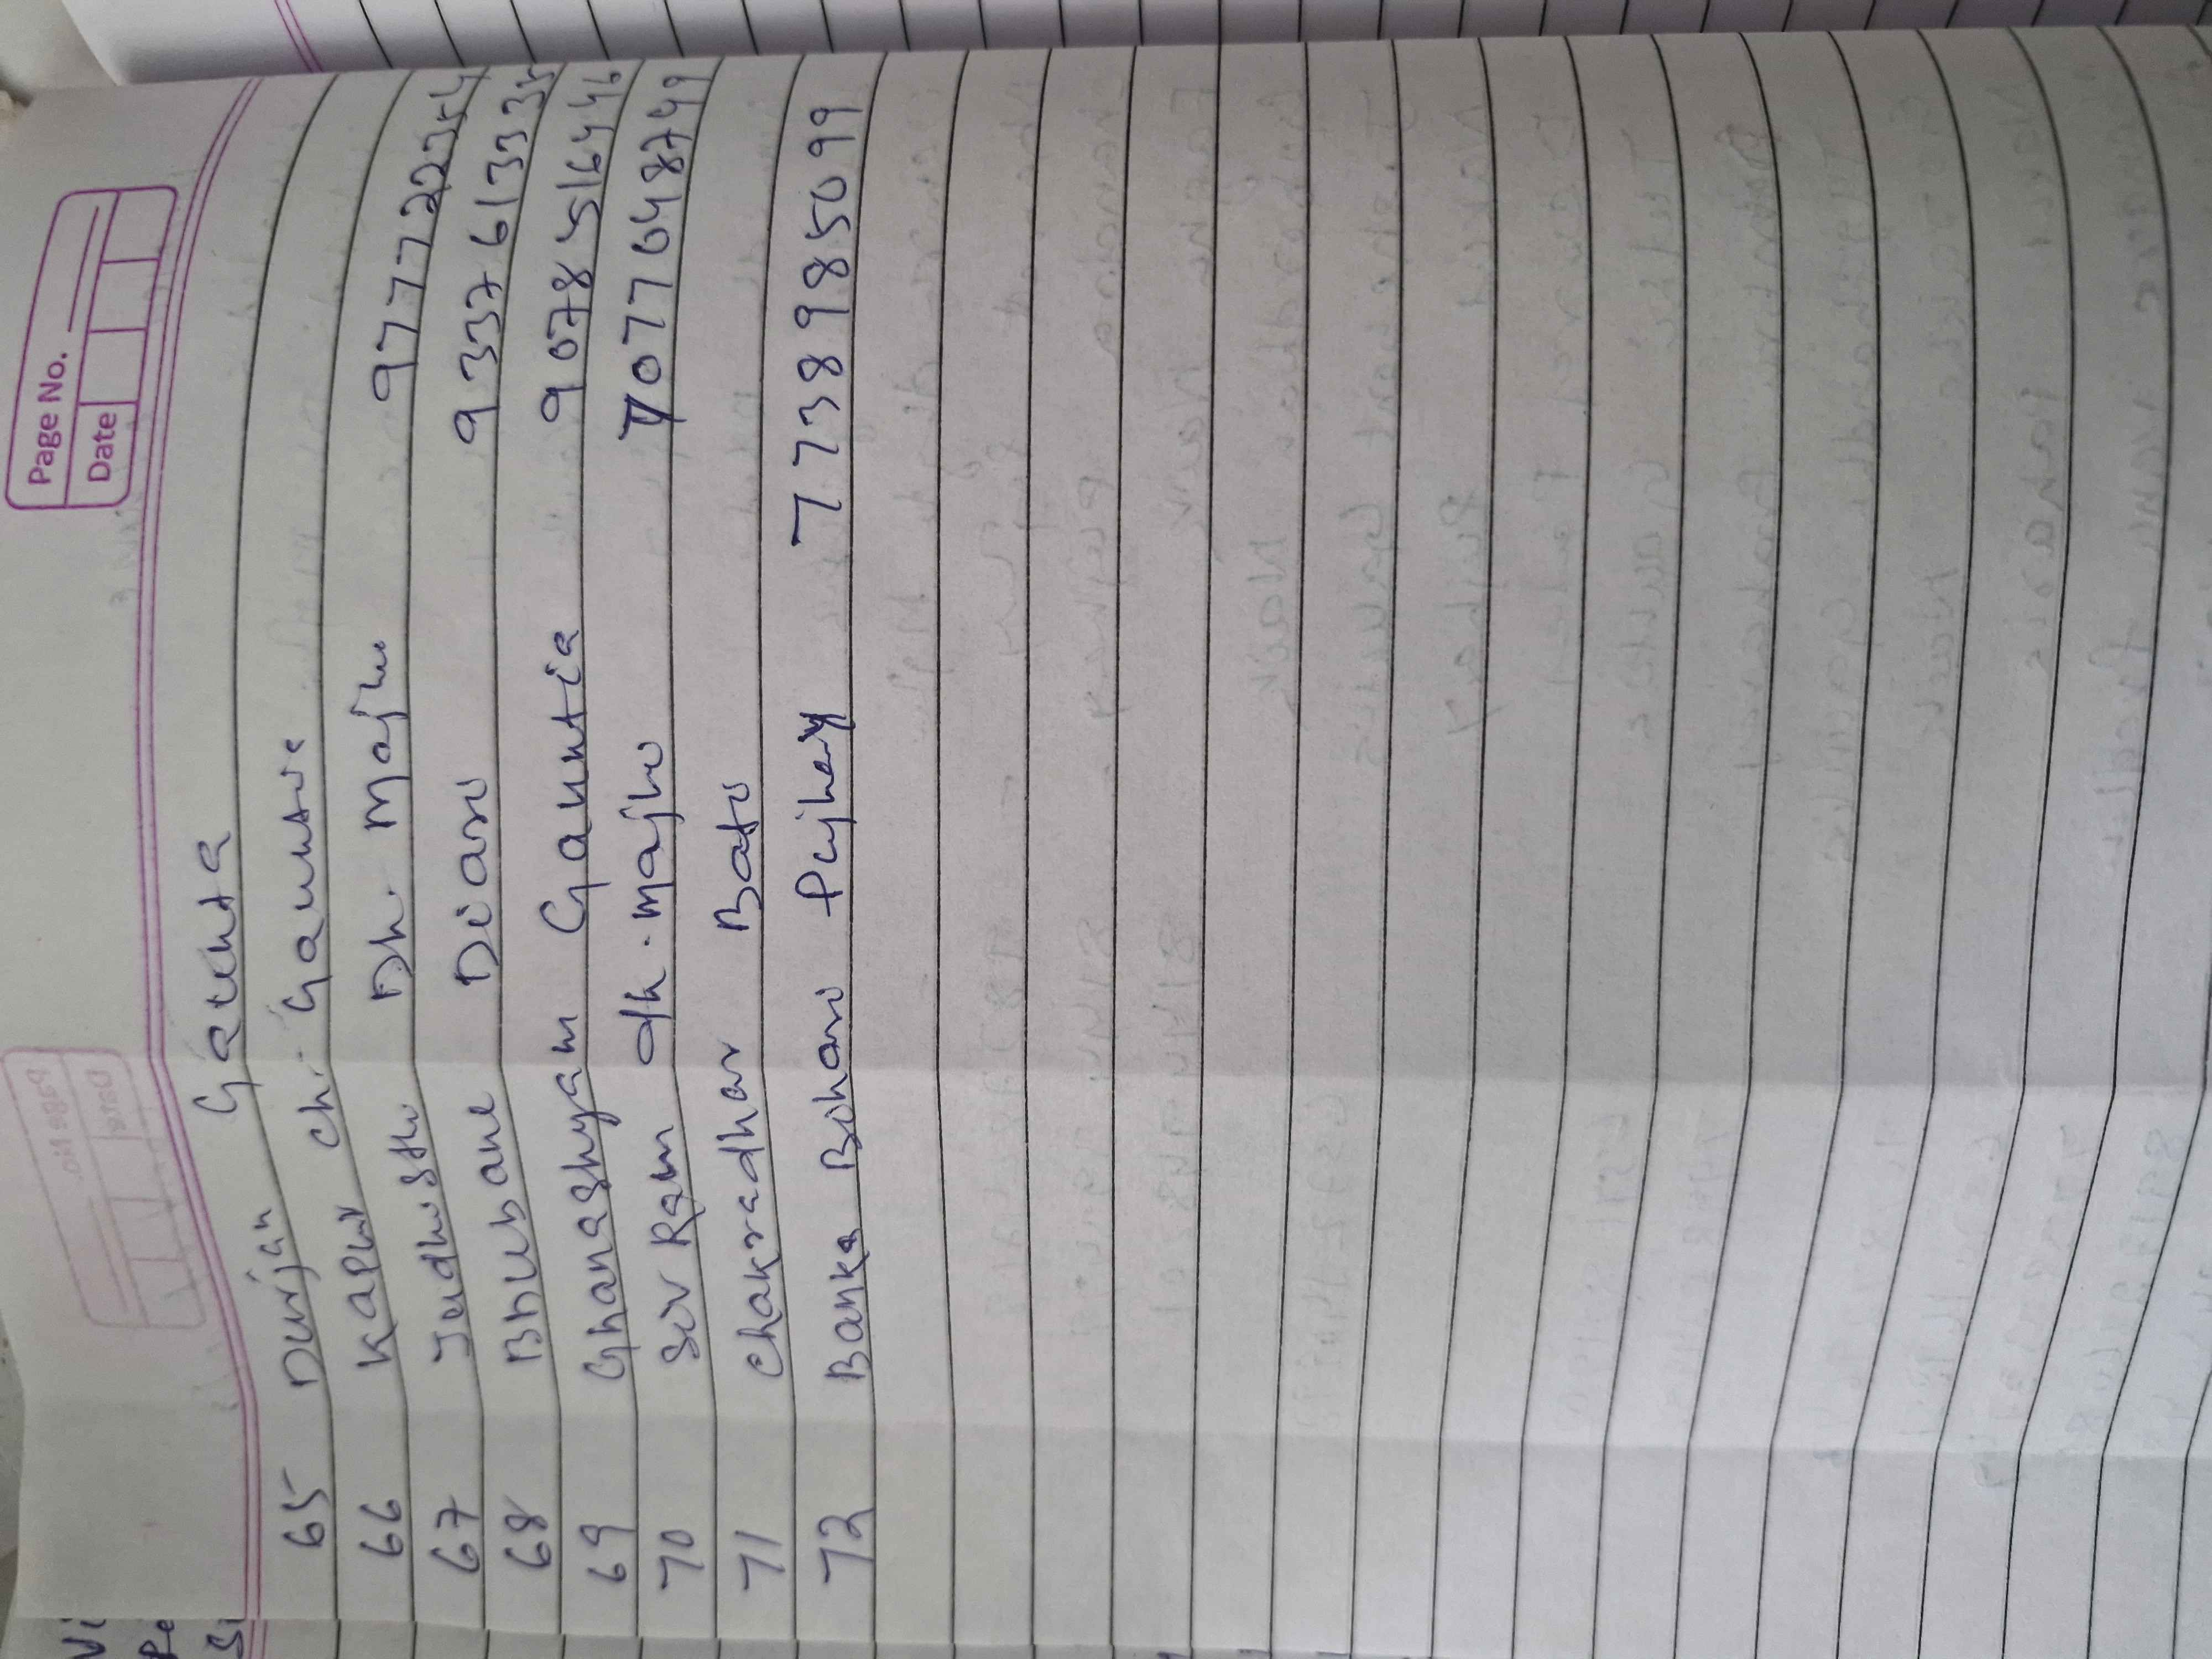 Page No.
Date
65 Durjan Gaunta
66 Kapui ch. Gauntia
67 Judhisthi Dh. Majhi
68 Bhubane Diani
69 Ghanashyam Gauntia
70 Siv Ram dh. majhi
71 Chakradhar Bati
72 Banka Bihari Pujhary 7739895099
9777222554
9337613335
9078516446
7077648749